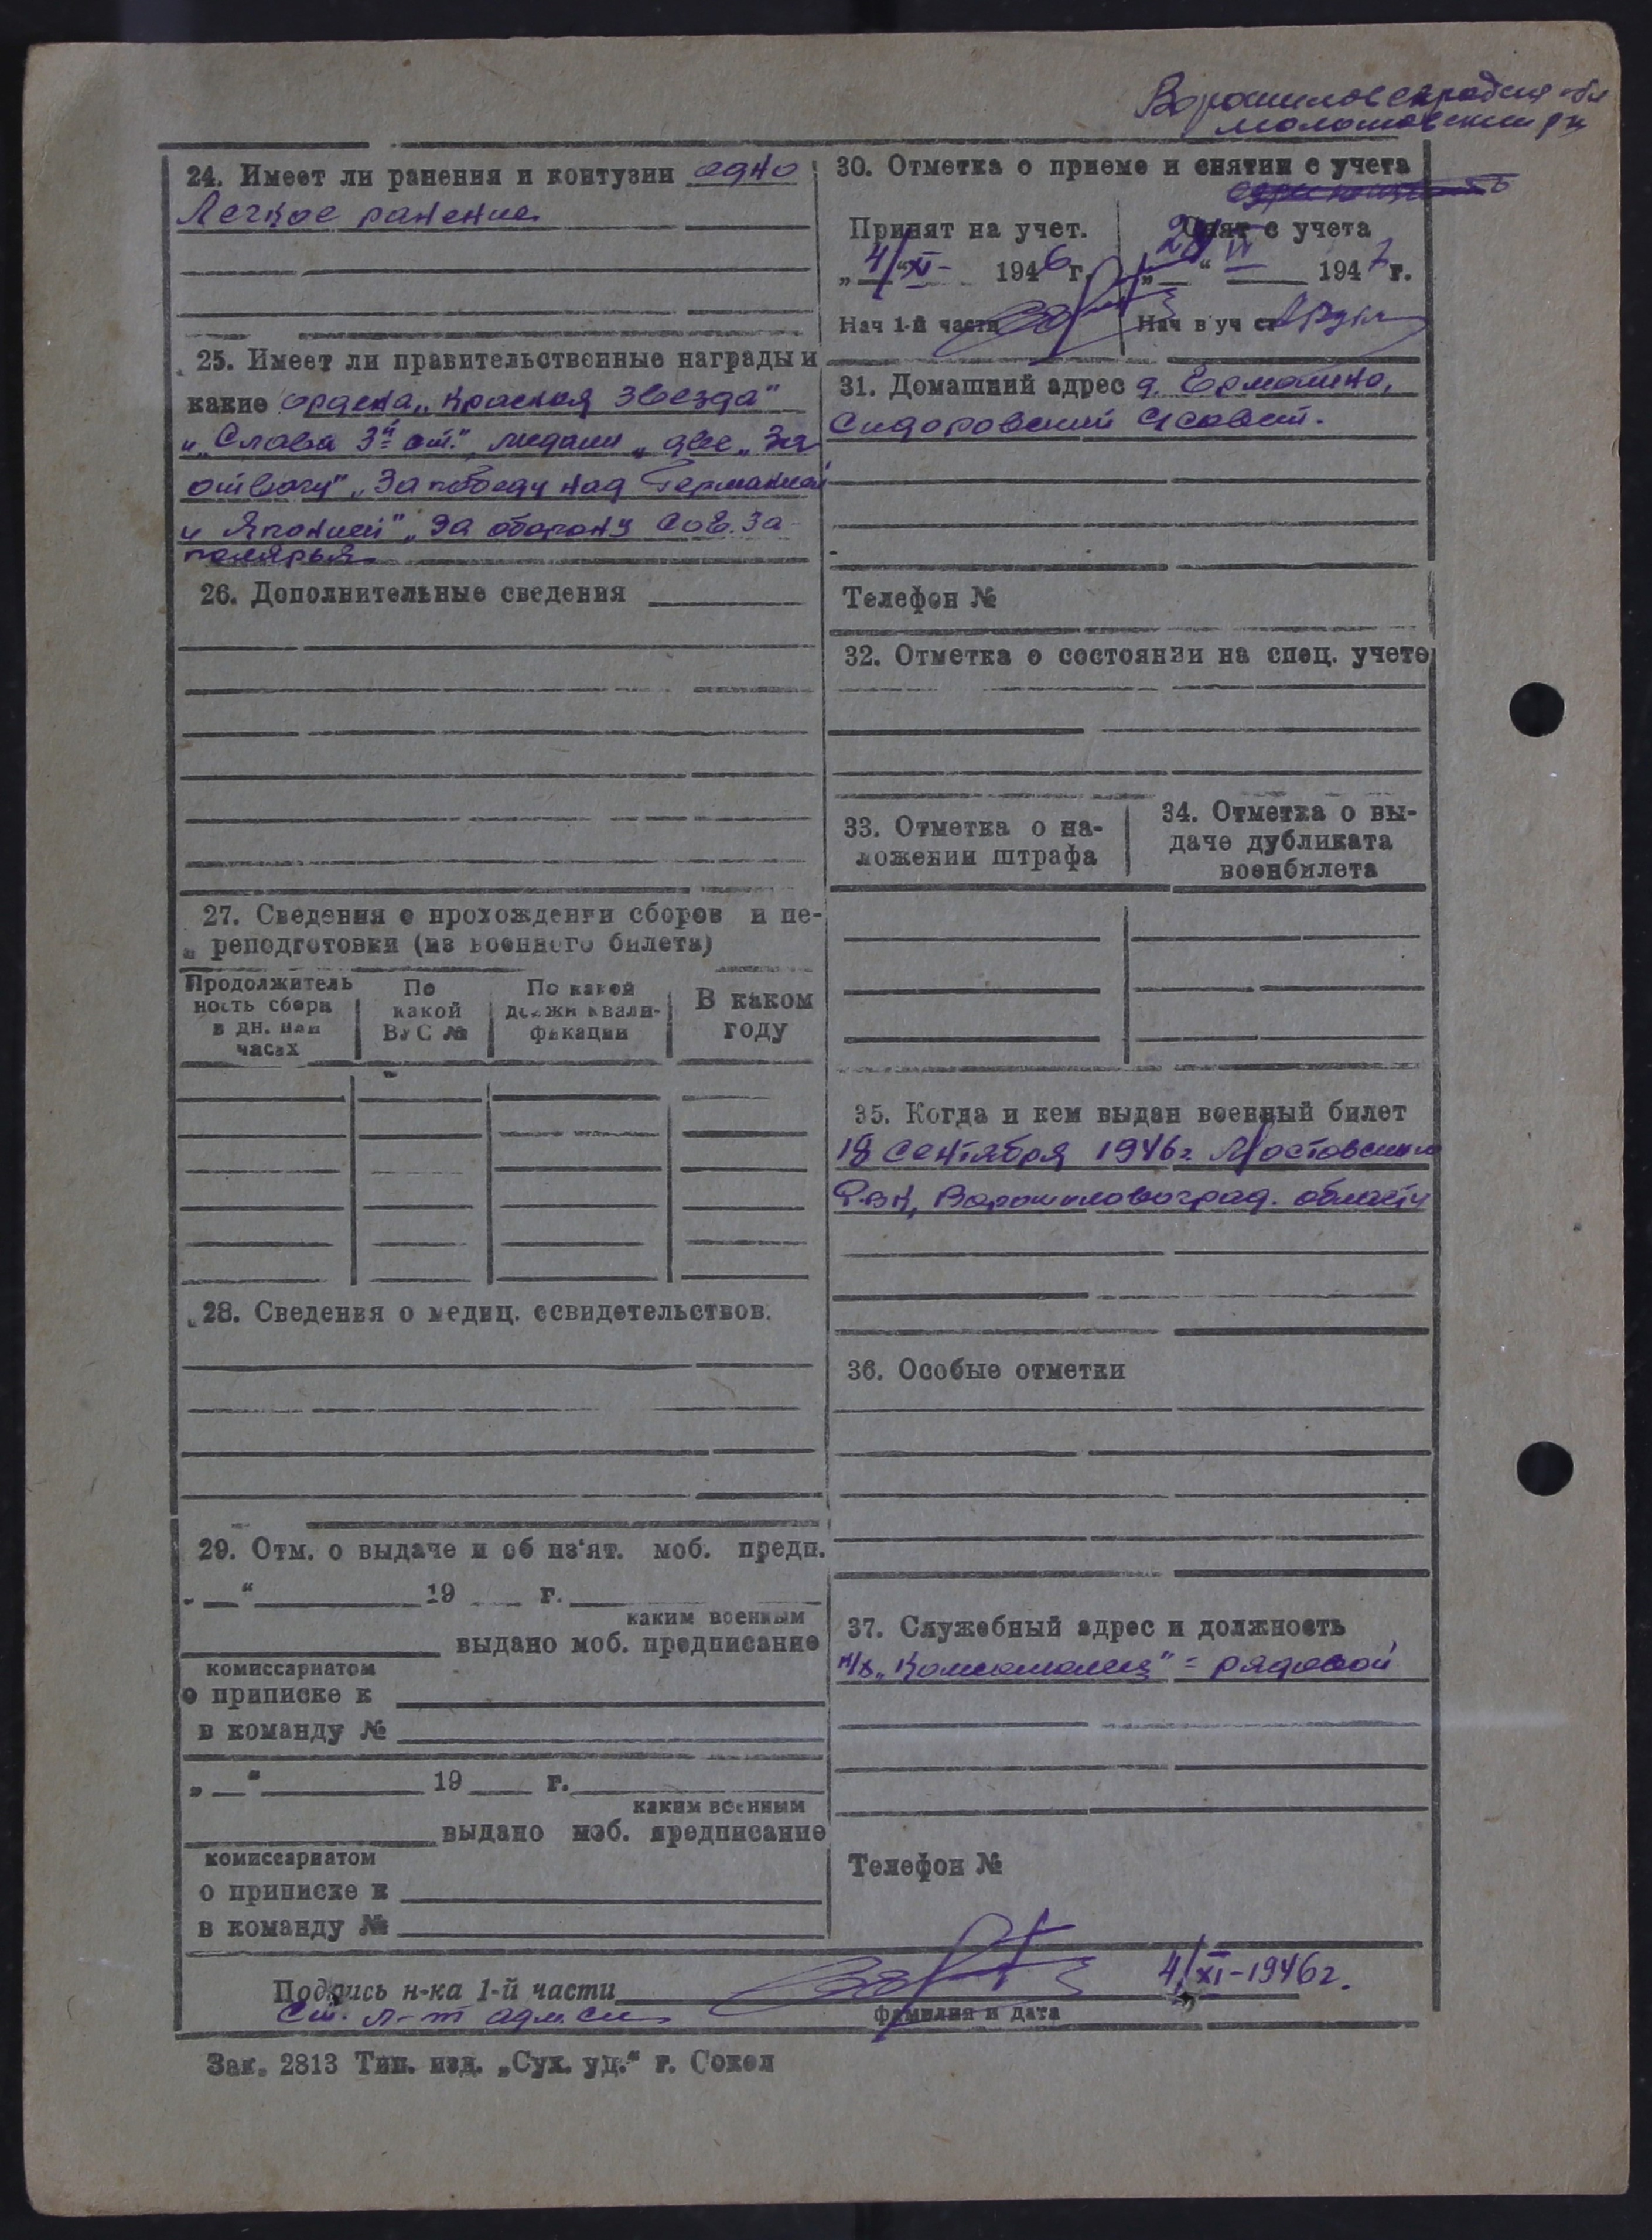 Ворошиловградская обл
24. Имеет ли ранения и контузии одно
Легкое ранение
25. Имеет ли правительственные награды и
какие ордена „Красная Звезда"
и „Слава 3й ст.", медали „две „За
отвагу" „За победу над Германией
и Японией" „За оборону Сов. За-
полярья
26. Дополнительные сведения
27. Сведения о прохождении сборов и пе-
реподготовки (из военного билета)
Продолжитель
ность сбора
в дн. или
часах
По
какой
ВУС №
По какой
должн квали-
фикации
В каком
году
28. Сведения о медиц. освидетельствов.
29. Отм. о выдаче и об из'ят. моб. предп.
„ “ 19 г.
каким военным
выдано моб. предписание
комиссариатом
о приписке к
в команду №
„ “ 19 г.
каким военным
выдано моб. предписание
комиссариатом
о приписке к
в команду №
30. Отметка о приеме и снятии с учета
Принят на учет.
„4“ XI- 1946 г.
Нач 1-й части
Снят с учета
1947 г.
Нач в уч ст
31. Домашний адрес д. Ермолино,
Сидоровский с/совет.
Телефон №
32. Отметка о состоянии на спец. учете
33. Отметка о на-
ложении штрафа
34. Отметка о вы-
даче дубликата
военбилета
35. Когда и кем выдан военный билет
18 сентября 1946г.
РВК, Ворошиловоград. области
36. Особые отметки
37. Служебный адрес и должность
к/х „Комсомолец" = рядовой
Телефон №
Подпись н-ка 1-й части 4/XI-1946г.
Ст. л-т адм. сл.
фамилия и дата
Зак. 2813 Тип. изд. „Сух. уд.“ г. Сокол